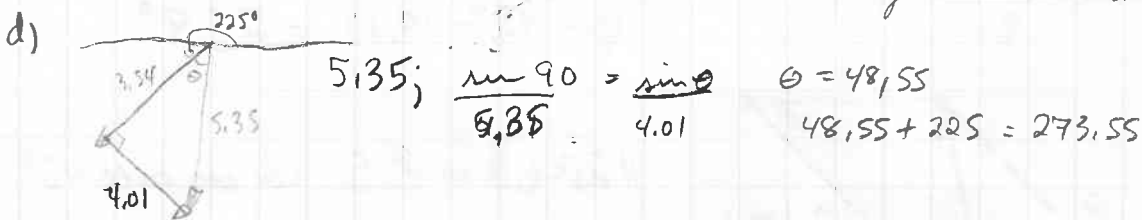 d)
225°
3.54
θ
5.35
4.01
5,35; sin 90 / 5,35 = sin θ / 4.01
θ = 48,55
48,55 + 225 = 273.55